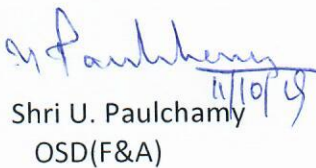 U Paulchamy
11/10/19
Shri U. Paulchamy
OSD(F&A)